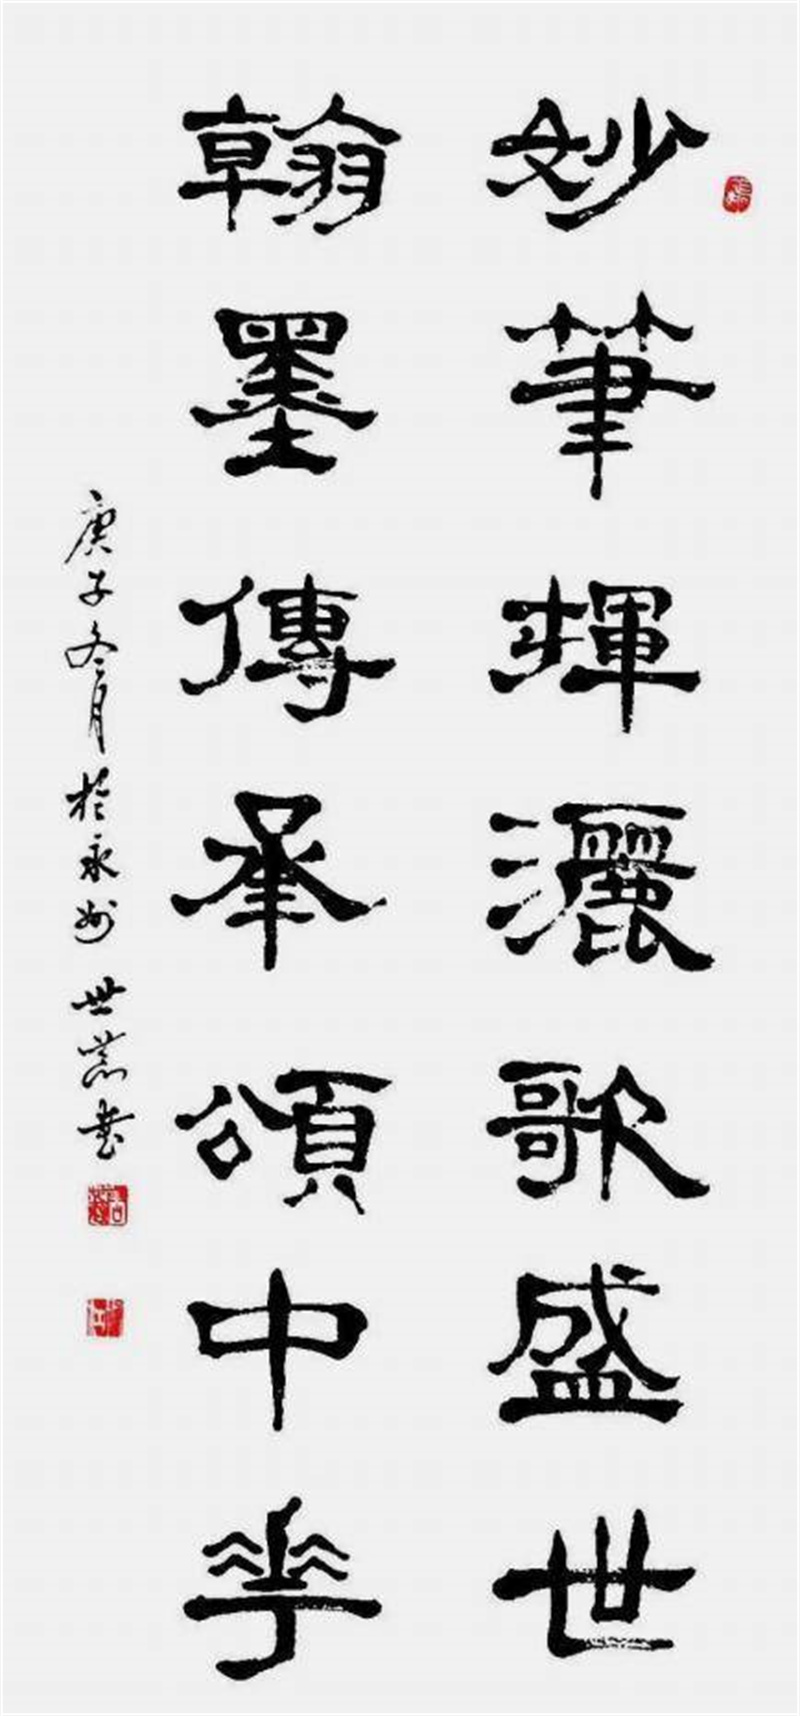 妙筆輝灑歌盛世
翰墨傳承頌中華
庚子冬月於永州 世㒷書